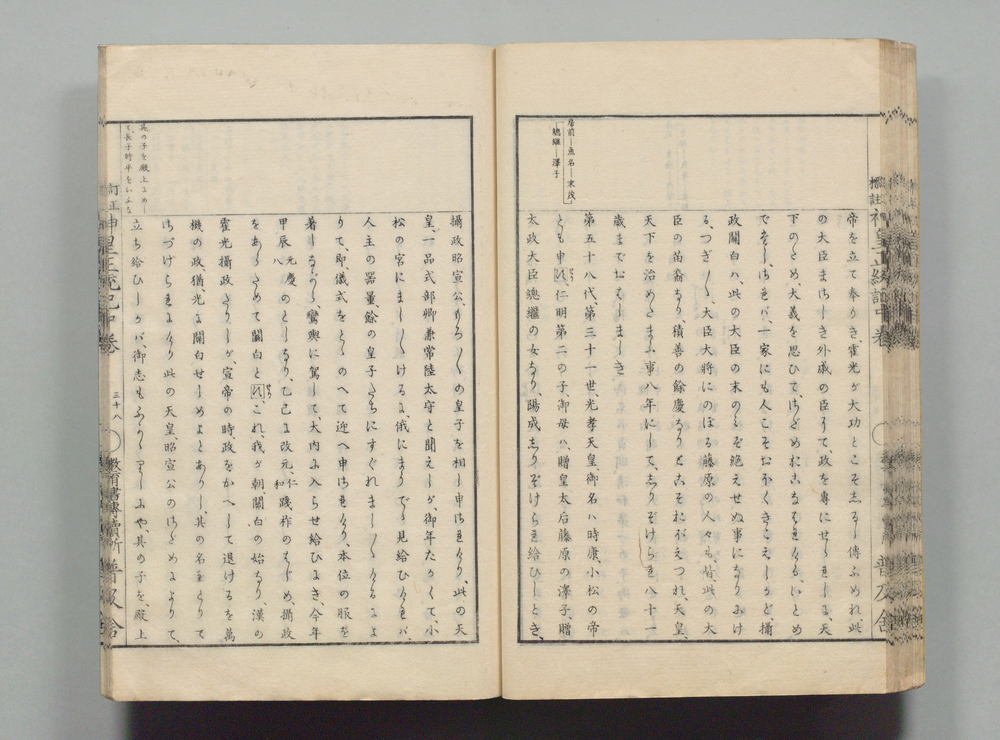 標註神皇正統記中卷
普及舍
房前―魚名―末茂
總繼―澤子
帝を立て奉りき霍光が大功とこそしるし傳ふめれ、此
の大臣まさしき外戚の臣にて、政を專にせられしに、天
下のため、大義を思ひて、さだめおこなはれける、いとめ
でたし、されば、一家にも人こそおほくきこえしかど攝
政關白ハ、此の大臣の末のみぞ絶えせぬ事になりにけ
る、つぎ〱、大臣大將にのぼる藤原の人々も、皆此の大
臣の苗裔なり、積善の餘慶なりとこそおぼえつれ、天皇、
天下を治めたまふ事八年にして、しりぞけられ八十一
歳までおはしましき、
第五十八代、第三十一世、光孝天皇、御名ハ時康、小松の帝
とも申す、仁明第二の子、御母ハ、贈皇太后藤原の澤子、贈
太政大臣總繼の女なり、陽成しりぞけられ給ひしとき、
攝政昭宣公、もろ〱の皇子を相し申されけり、此の天
皇、一品式部卿兼常陸太守と聞えしが、御年たかくて、小
松の宮にましましけるに、俄にまうでゝ見給ひければ、
人主の器量、餘の皇子たちにすぐれましましけるによ
りて、即儀式をとゝのへて迎へ申されけり、本位の服を
著しながら、鸞輿に駕して、大内に入らせ給ひにき、今年
甲辰元慶八のとしなり、乙巳に改元、仁和踐祚のはじめ、攝政
をあらためて關白とす、これ、我が朝關白の始なり、漢の
霍光攝政たりしが、宣帝の時、政をかへして退けるを萬
機の政、猶光に關白せしめよとありし、其の名をとりて
さづけられにけり、此の天皇、昭宣公のさだめによりて、
立ち給ひしかバ、御志もふかかりしにや、其の子を、殿上
其の子を殿上にめし
て長子時平をいふなり
訂正神皇正統記中卷
三十八
教育書専賣所 普及舍